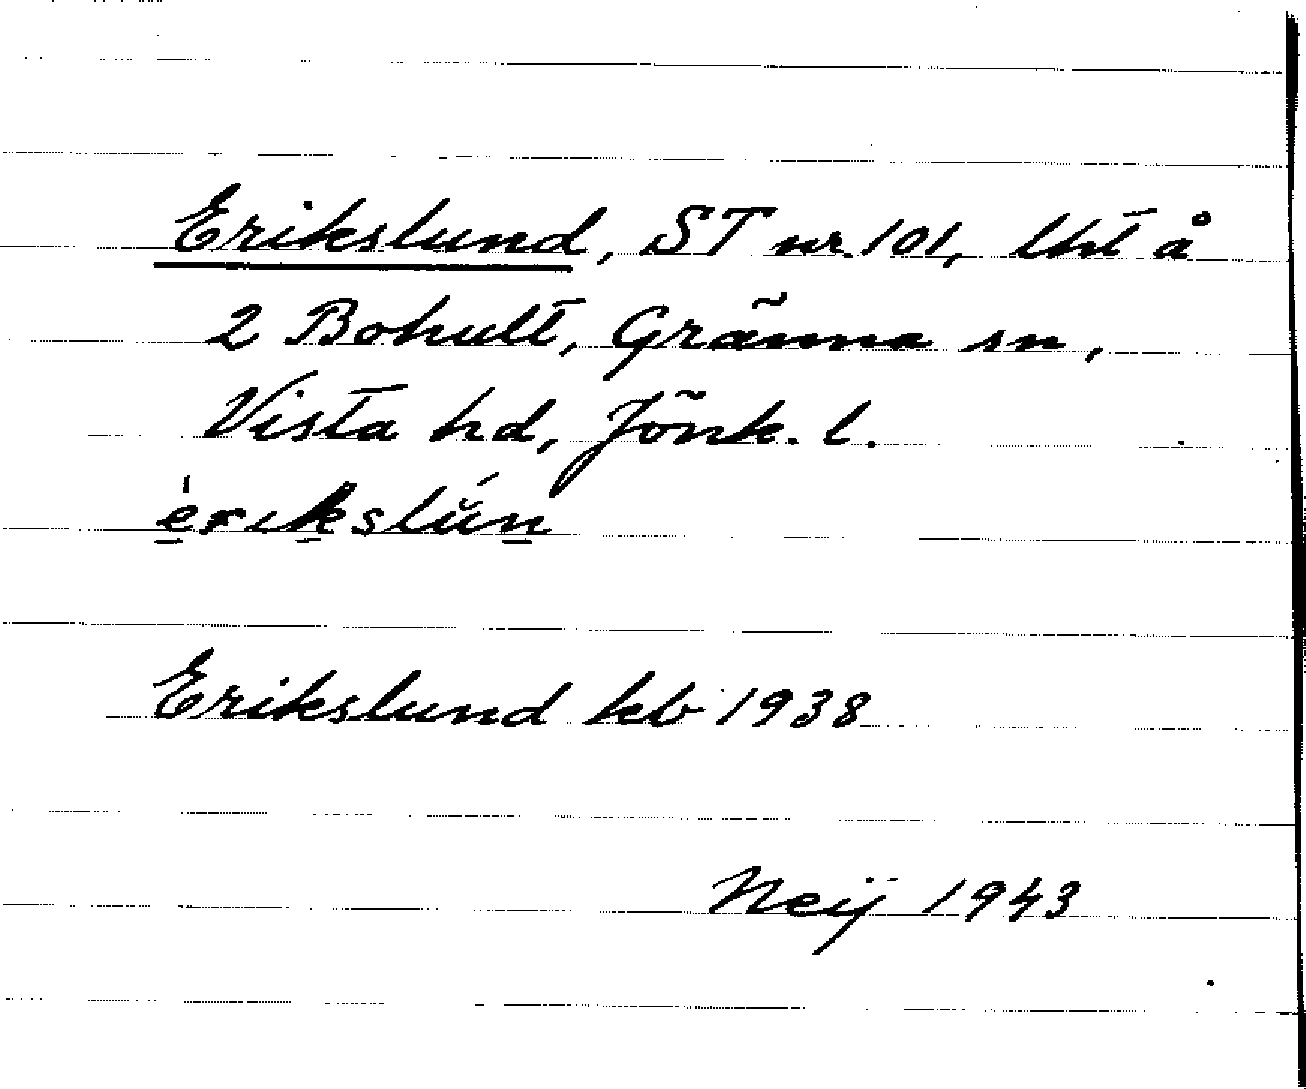 Erikslund, ST nr. 101, lht å
2 Bohult, Gränna sn,
Vista hd, Jönk. l.
èrıkslún
Erikslund kb 1938
Neij 1943